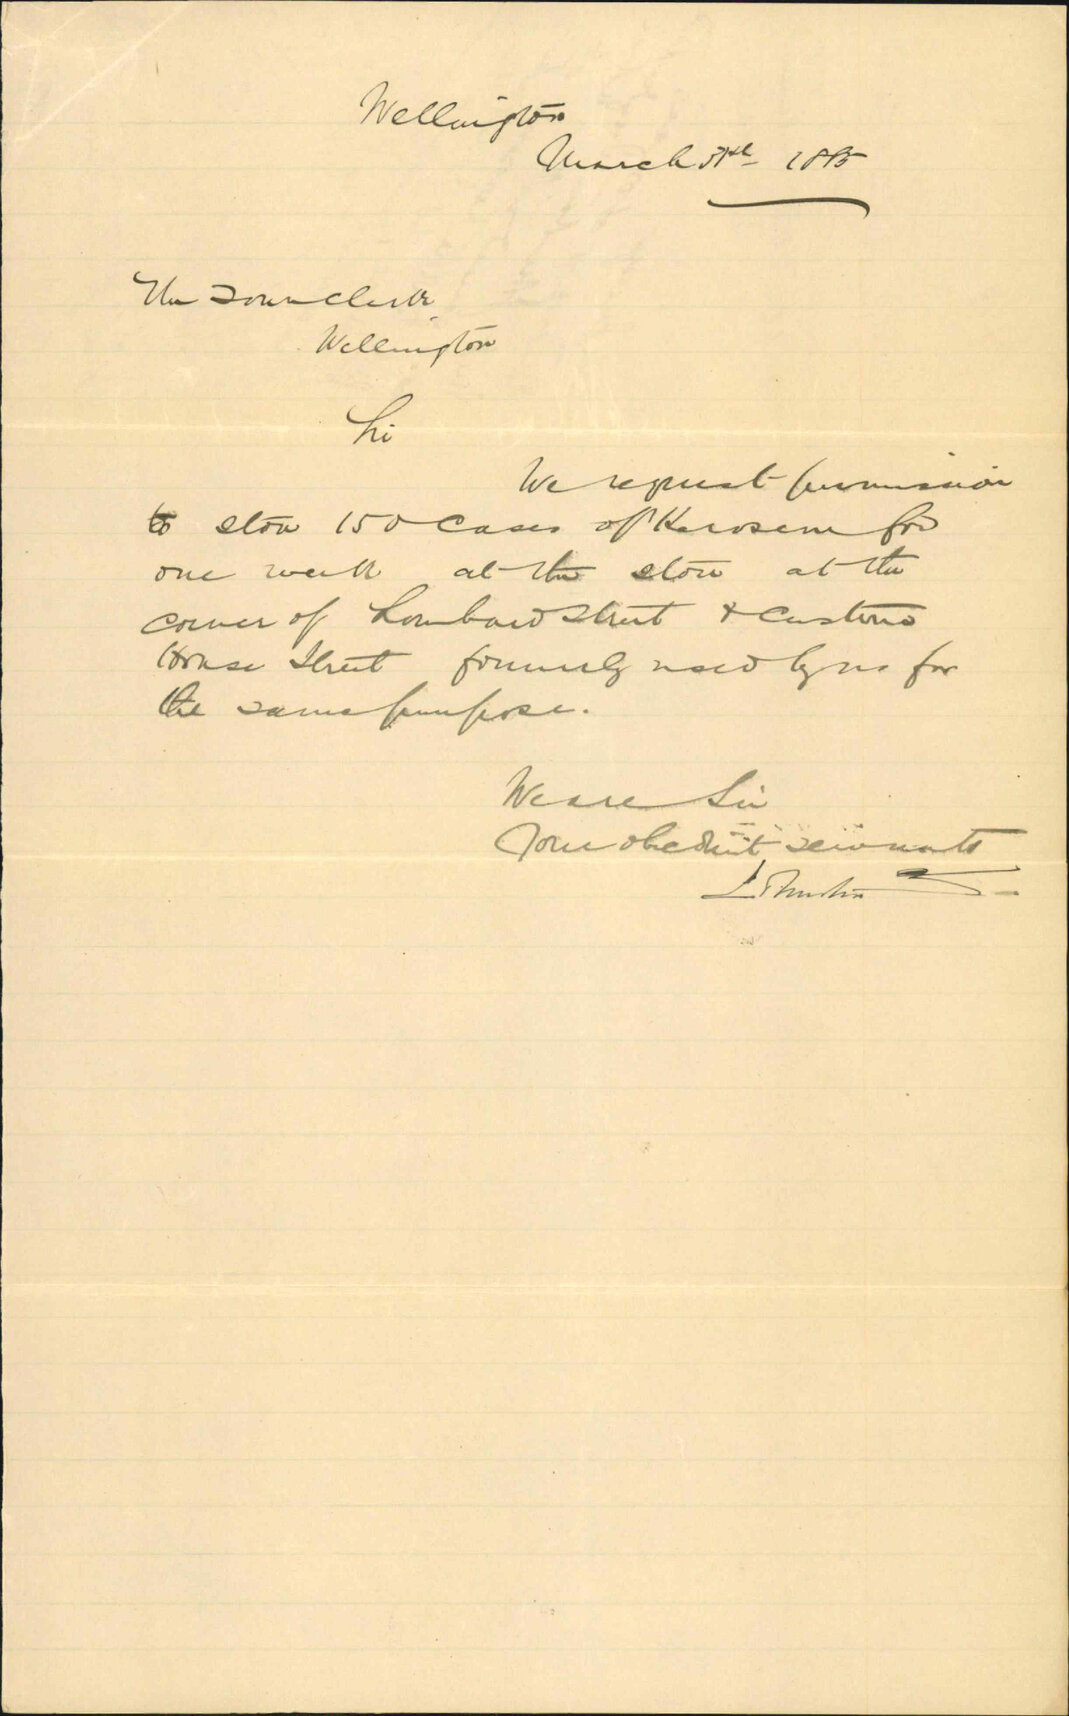 Wellington
March 1885
The Town Clerk
Wellington
Sir
We request permission
to store 150 Cases of Kerosene for
one week at the store at the
corner of Lombard Street & Customs
House Street formerly used by us for
the same purpose.
We are Sir
Your obedient servants